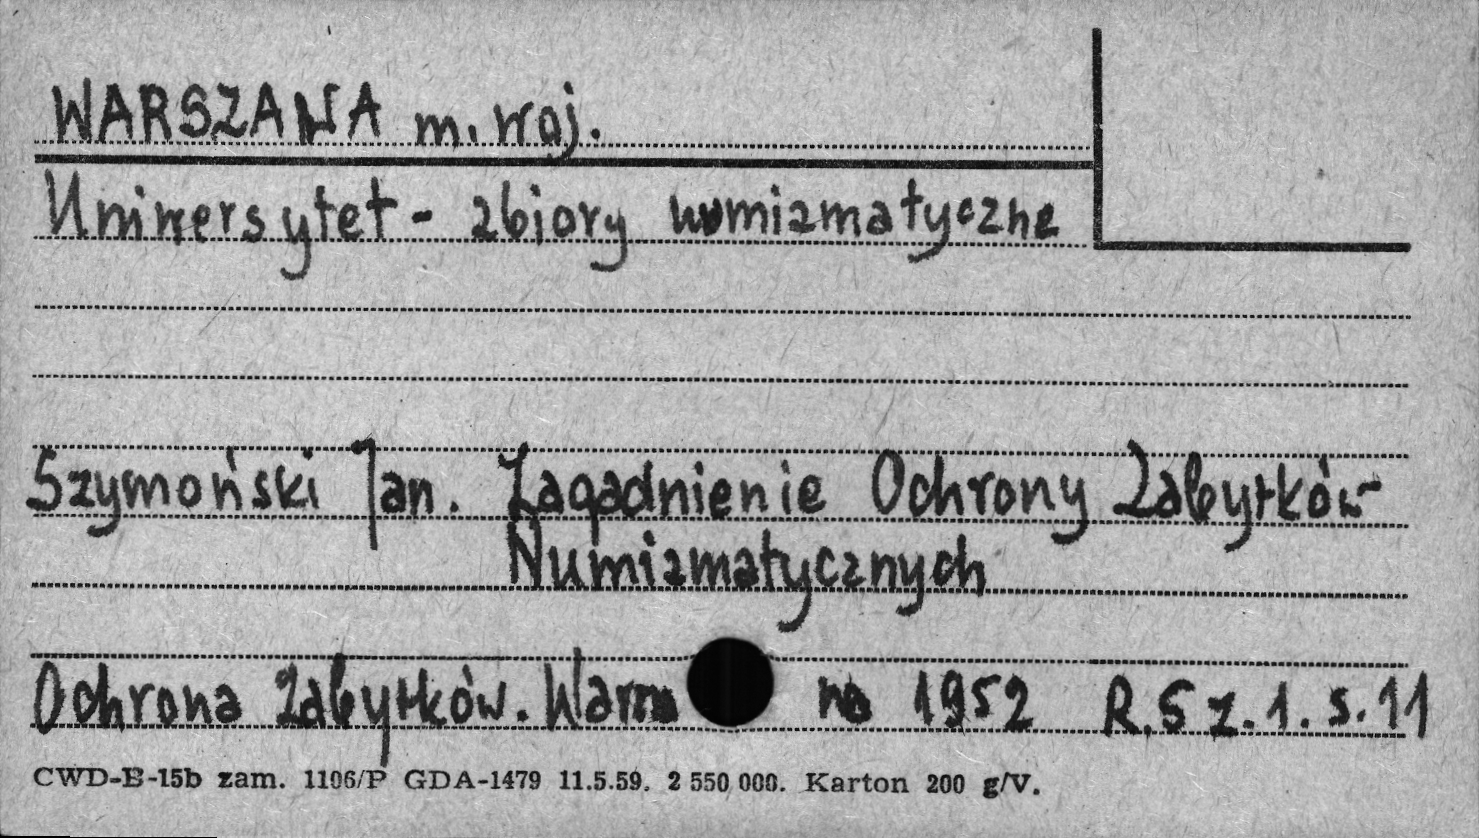 WARSZAWA m. woj.
Uniwersytet - zbiory numizmatyczne
Szymoński Jan. Zagadnienie Ochrony Zabytków
Numizmatycznych
Ochrona Zabytków. 1952 R.5 z.1. s.11
CWD-B-15b zam. 1106/P GDA-1479 11.5.59. 2 550 000. Karton 200 g/V.